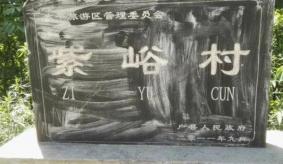 旅游区管理委员会
紫峪村
ZI YU CUN
户县人民政府
二〇一一年九月